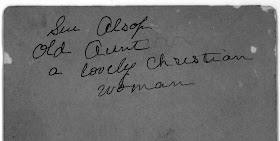 Sue Alsop
Old Aunt
a lovely Christian
woman